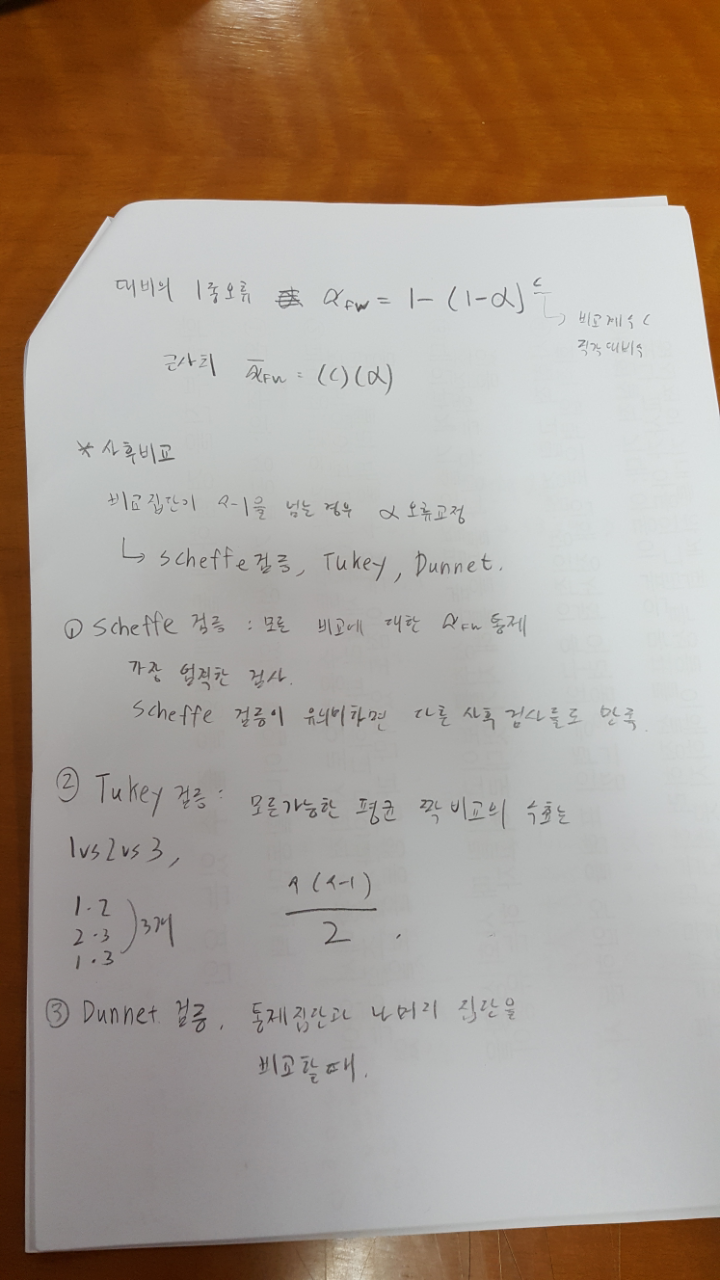 대비의 1종오류 α_FW = 1-(1-α)^c
↳ 비교계수 c
직각대비수
근사치 α̅_FW = (c)(α)
* 사후비교
비교집단이 a-1을 넘는 경우 α 오류교정
↳ scheffe검증, Tukey, Dunnet.
① scheffe 검증 : 모든 비교에 대한 α_FW 통제
가장 엄격한 검사.
scheffe 검증이 유의미하면 다른 사후 검사들도 만족.
② Tukey 검증 : 모든가능한 평균 짝 비교의 수효는
1vs2vs3,
1·2
2·3 ) 3개
1·3
a(a-1)
2 .
③ Dunnet 검증, 통제집단과 나머지 집단을
비교할때.